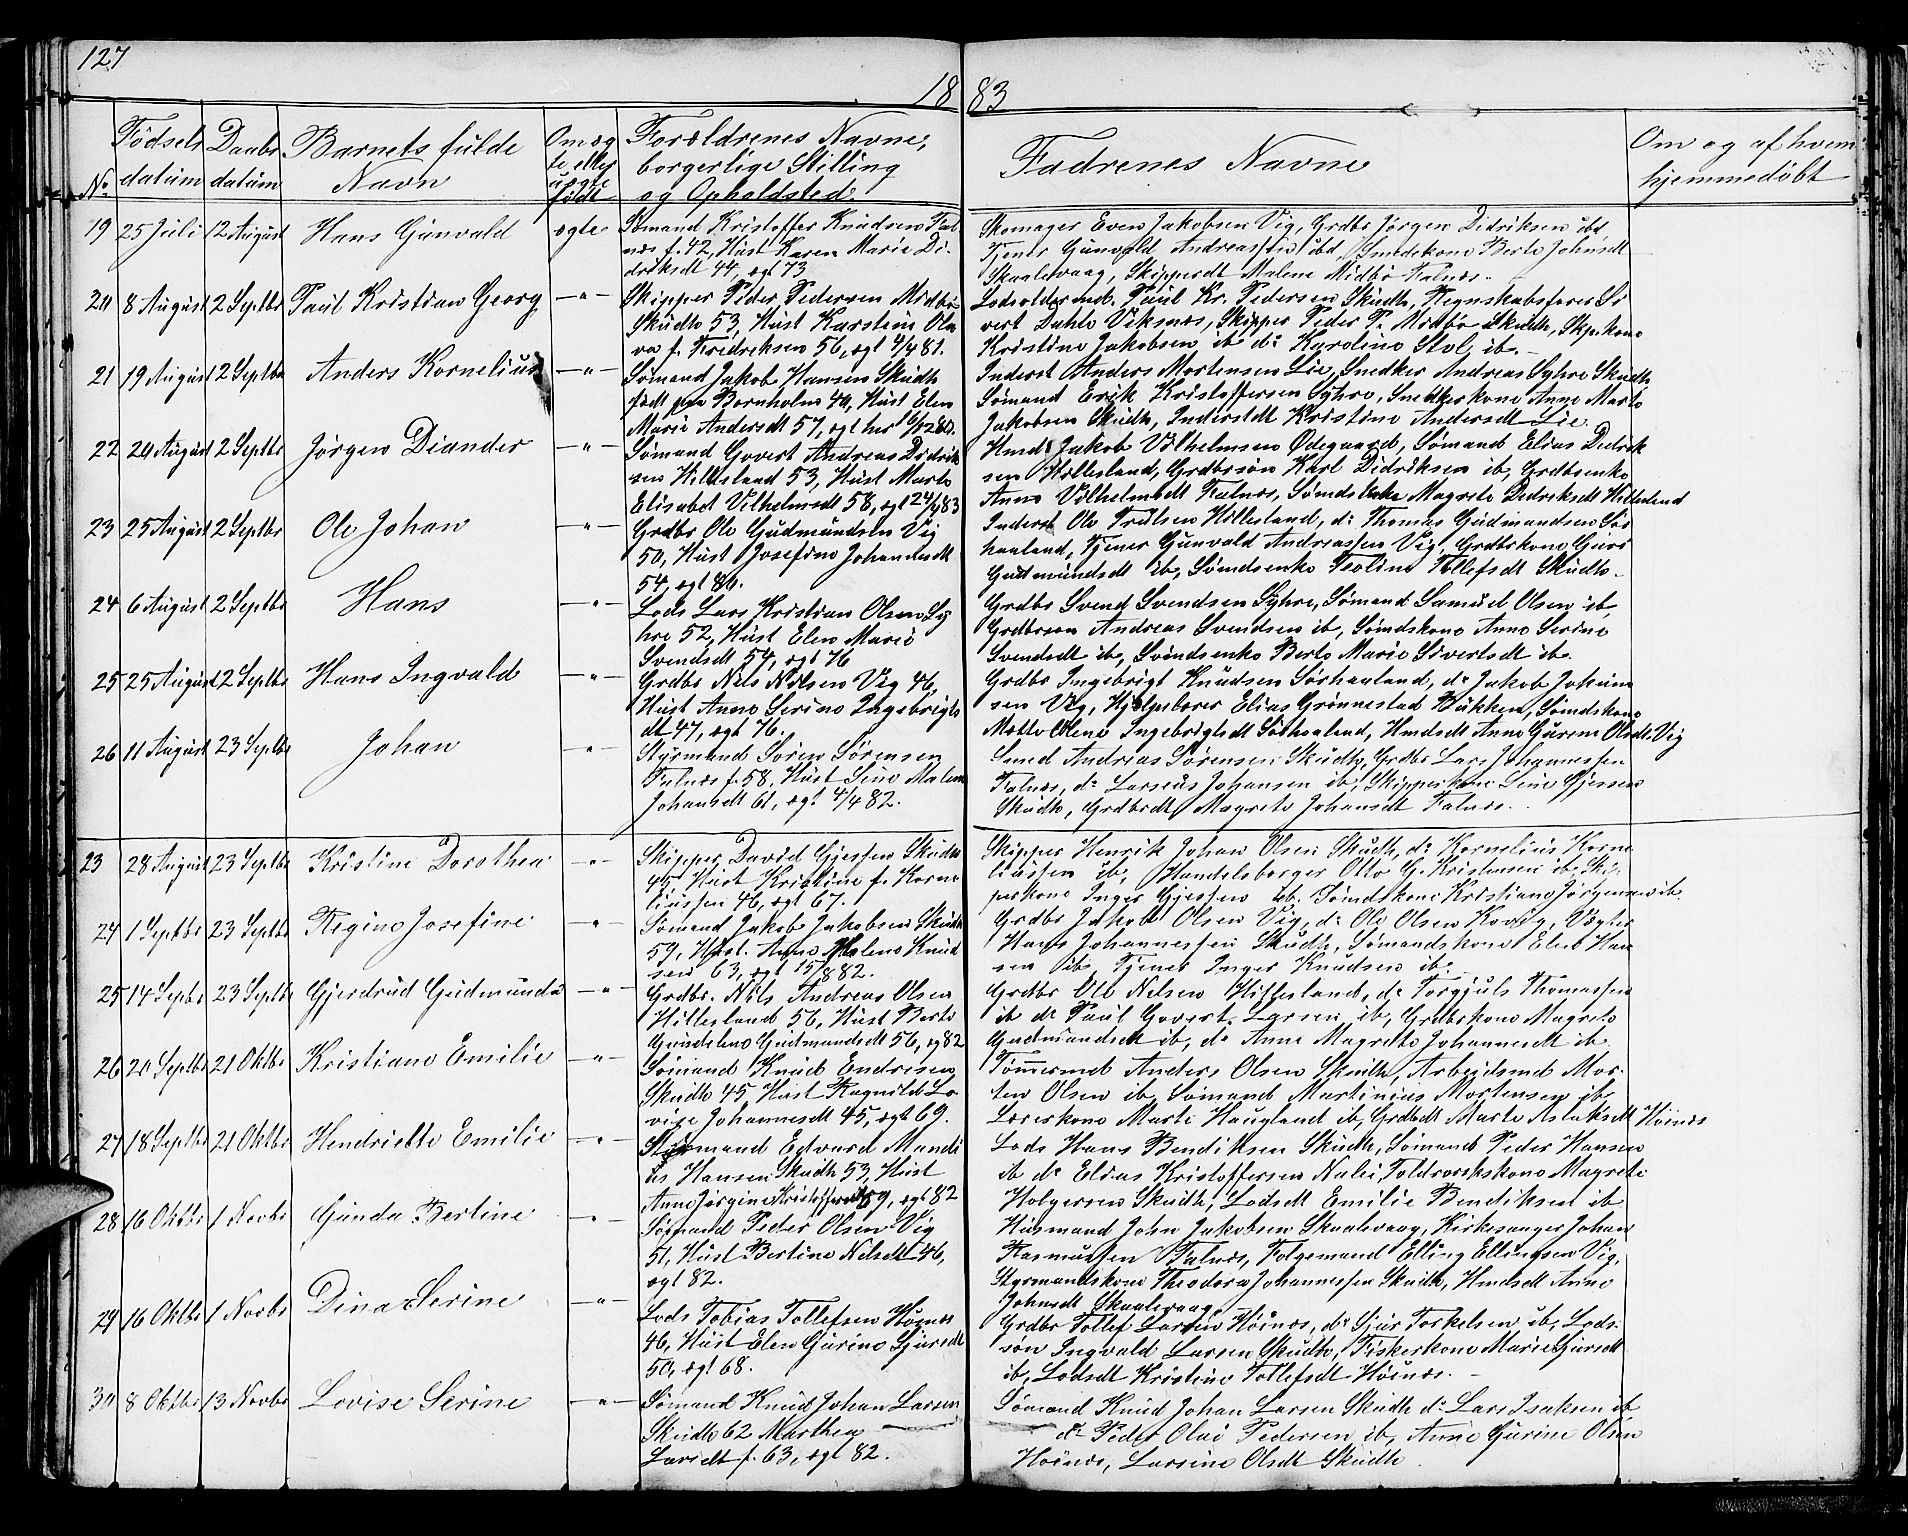 127
18 83
No
Fødsels
datum
Daabs
datum
Barnets fulde
Navn
Om æg
te eller
uægte
født
Forældrenes Navne,
borgerlige Stilling
og Opholdsted.
Fadrenes Navne
Om og af hvem
hjemmedøbt
19 25 Juli 12 August Hans Gunvald ægte
Sømand Kristoffer Knudsen Fal
næs f. 42, Hust Karen Marie Di-
driksdt 44, ægt 73
Skomager Even Jakobsen Vig, Grdbr Jørgen Didriksen ibd
Tjener Gunvald Andreassen ibd, Smedekone Berte Johnsdt
Skaalevaag, Skipperdt Malene Midbø Falnæs.
20 8 August 2 Septbr Paul Kristian Georg -"-
Skipper Peder Pedersen Midbø
Skudh 53, Hust Karstine Ola
va f. Fredriksen 56, ægt 4/4 81.
Lodsoldermd. Paul Kr. Pedersen Skudh, Regnskabsfører Si
vert Dahle Viksnæs, Skipper Peder P. Midbø Skudh, Skip.kone
Kristine Jakobsen ib d: Karoline Stol ib.
21 19 August 2 Septbr Anders Kornelius -"-
Sømand Jakob Hansen Skudh
født paa Bornholm 40, Hust Elen
Marie Andersdt 57, ægt her
Inderst Anders Mortensen Lie, Snedker Andreas Syhre Skudh
Sømand Erik Kristoffersen Syhre, Snedkerkone Anne Marte
Jakobsen Skudh, Inderstdt Kristine Andersdt Lie.
22 20 August 2 Septbr Jørgen Diander -"-
Sømand Govert Andreas Didrik
sen Hillesland 53, Hust Marte
Elisabet Vilhelmsdt 58, ægt 24/4 83
Hmd Jakob Vilhelmsen Ødegaard, Sømand Elias Didrik
sen Hillesland, Grdbrsøn Karl Didriksen ib, Grdbrenke
Anne Vilhelmsdt Falnæs, Sømdsenke Magrete Didriksdt Hillesland
23 25 August 2 Septbr Ole Johan -"-
Grdbr Ole Gudmundsen Vig
50, Hust Josefine Johannesdt
54, ægt 80.
Inderst Ole Trulsen Hillesland, d: Thomas Gudmundsen Sør
haaland, Tjener Gunvald Andreassen Vig, Grdbrkone Guri
Gudmundsdt ib, Sømdsenke Tollefsdt Skudh.
24 6 August 2 Septbr Hans -"-
Lods Lars Kristian Olsen Sy
hre 52, Hust Elen Marie
Svendsdt 54, ægt 76
Grdbr Svend Svendsen Syhre, Sømand Samuel Olsen ib,
Grdbrsøn Andreas Svendsen ib, Sømdskone Anne Serine
Svendsdt ib, Sømdsenke Berte Marie Sivertsdt ib.
25 25 August 2 Septbr Hans Ingvald -"-
Grdbr Nils Nilsen Vig 46,
Hust Anne Serine Ingebrigts
dt 47, ægt 76.
Grdbr Ingebrigt Knudsen Sørhaaland, d: Jakob Jokum
sen Vig, Hjelpelærer Elias Grønnestad Bukken, Sømdskone
Mette Olene Ingebrigtsdt Sørhaaland, Hmdsdt Anne Gurine Olsdt Vig
26 11 August 23 Septbr Johan "
Styrmand Søren Sørensen
Falnæs f. 58, Hust Sine Malene
Johansdt 61, ægt 4/4 82.
Smed Andreas Sørensen Skudh, Grdbr Lars Johannessen
Falnæs, d: Larsius Johansen ib, Skipperkone Sine Gjessen
Skudh, Grdbrdt Magrete Johansdt Falnæs.
23 28 August 23 Septbr Kristine Dorothea -"-
Skipper David Gjessen Skudh
45 Hust Kristine f. Korne
liussen 46, ægt 67.
Skipper Henrik Johan Olsen Skudh, d: Kornelius Korne
liussen ib, Handelsborger Otto G. Kristensen ib, Skip
perkone Inger Gjessen ib. Sømdskone Kristiane Jørgensen ib.
24 1 Septbr 23 Septbr Regine Josefine "
Sømand Jakob Jakobsen Skudh
59, Hust. Anne Malene Knud
sen 63, ægt 15/8 82.
Grdbr Jakob Olsen Vig, d: Ole Olsen Kovig, Vægter
Hans Johannessen Skudh, Sømandskone Eleb Han
sen ib Tjener Inger Knudsen ib.
25 14 Septbr 23 Septbr Gjerdrud Gudmunda -"-
Grdbr. Nils Andreas Olsen
Hillesland 56, Hust Berte
Gudmundsdt 56, æg 82
Grdbr Ole Nilsen Hillesland, d: Torgjuls Thomassen
ib d: Paul Govert Larsen ib, Grdbrkone Magrete
Gudmundsdt ib, d: Anne Magrete Johannesdt ib.
26 20 Septbr 21 Oktbr Kristiane Emilie -"-
Sømand Knud Endresen
Skudh 45 Hust Ragnild Lo
vise Johannesdt 45, ægt 69.
Tømermd Anders Olsen Skudh, Arbeidsmd Mor-
ten Olsen ib, Sømand Martinius Mortensen ib
Lærerkone Marte Haugland ib, Grdbrdt Marte Aslaksdt Høinæs
27 18 Septbr 21 Oktbr Hendriette Emilie -"-
Styrmand Edvard Mandi
us Hansen Skudh 53, Hust
Anne Jørgine Kristoffersdt 59, ægt 82
Lods Hans Bendiksen Skudh, Sømand Peder Hansen
ib d: Elias Kristoffersen Nulei, Toldroerskone Magrete
Holgersen Skudh, Lodsdt Emilie Bendiksen ib
28 16 Oktbr 1 Novbr Gunda Bertine "
Sømand Peder Olsen Vig
51, Hust Bertine Nilsdt 46,
ægt 82.
Husmand John Jakobsen Skaalevaag, Kirkesanger Johan
Rasmussen Falnæs, Følgemand Elling Ellingsen Vig,
Styrmandskone Theodora Johannessen Skudh, Hmdsdt Anne
Johnsdt Skaalevaag.
29 16 Oktbr 1 Novbr Dina Serine -"-
Lods Tobias Tollefsen Høinæs
46, Hust Elen Gurine Sjursdt
50, ægt 68.
Grdbr Tollef Larsen Høinæs, d: Sjur Torkelsen ib, Lods-
søn Ingvald Larsen Skudh, Fiskerkone Marie Sjursdt
ib, Lodsdt Kristine Tollefsdt Høinæs.
30 8 Oktbr 13 Novbr Lovise Serine -"-
Sømand Knud Johan Larsen
Skudh 62 Marthea
Larsdt f. 63, ægt 82.
Sømand Knud Johan Larsen Skudh d: Lars Isaksen ib
d: Peder Olai Pedersen ib, Anne Gurine Olsen
Høinæs, Larsine Olsdt Skudh.